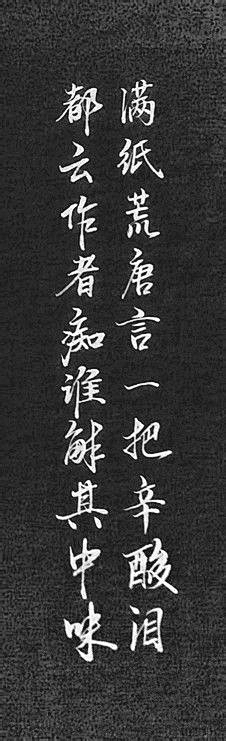 满纸荒唐言一把辛酸泪
都云作者痴谁解其中味